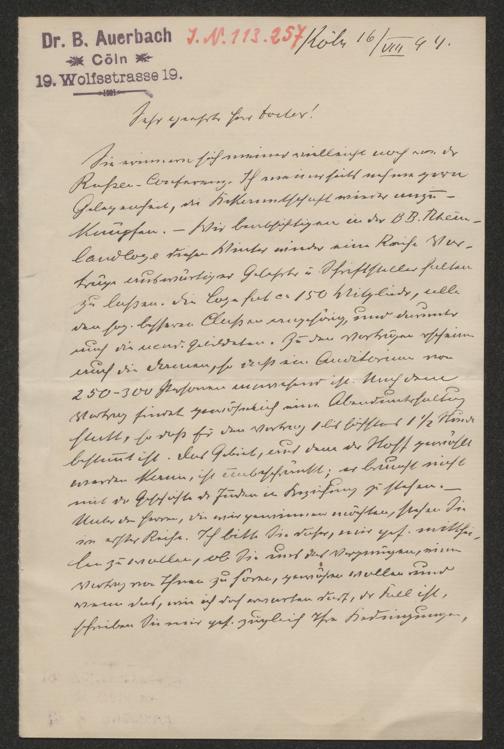 Dr. B. Auerbach
Cöln
19. Wolfsstrasse 19.
J. N. 113.257
Köln 16/VIII 94.
Sehr geehrter Herr Doctor!
Sie erinnern sich meiner vielleicht noch von der
Conferenz. Ich meinerseits nehme gern
Gelegenheit, die Bekanntschaft wieder anzu-
knüpfen. – Wir beabsichtigen in der BB. Rhein-
landloge diesen Winter wieder eine Reihe Vor-
träge auswärtiger Gelehrter u Schriftsteller halten
zu laßen. Die Loge hat ca 150 Mitglieder, alle
den sog. besseren Classen angehörig, und darunter
auch die Zu den Vorträgen erscheinen
auch die Damen, so daß ein Auditorium von
250–300 Personen anwesend ist. Nach dem
Vortrag findet gewöhnlich eine Abendunterhaltung
statt, so daß für den Vortrag 1 bis höchstens 1 1/2 Stunde
bestimmt ist. Das Gebiet, aus dem der Stoff gewählt
werden kann, ist unbeschränkt; er braucht nicht
mit der Geschichte der Juden in Beziehung zu stehen. –
Unter den Herren, die wir gewinnen möchten, stehen Sie
in erster Reihe. Ich bitte Sie daher, mir gef. mitthei-
len zu wollen, ob Sie uns das Vergnügen, einen
Vortrag von Ihnen zu hören, gewähren wollen und
wenn das, wie ich doch erwarten darf, der Fall ist,
schreiben Sie mir gef. zugleich Ihre Bedingungen,